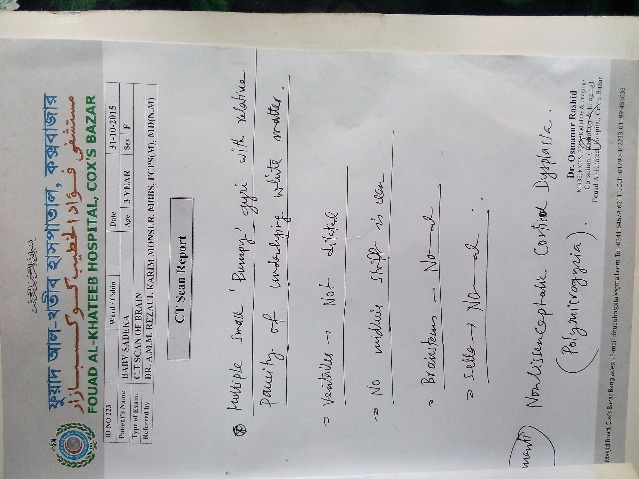 ফুয়াদ আল-খতীব হাসপাতাল, কক্সবাজার
مستشفى فؤاد الخطيب كوكس بازار
FOUAD AL-KHATEEB HOSPITAL, COX'S BAZAR
ID NO 223 Ward / Cabin Date 31-10-2015
Patient's Name BABY SADEKA Age 3 YEAR Sex F
Type of Exam. CT SCAN OF BRAIN
Referred by DR. A.M.M. REZAUL KARIM MONSUR. MBBS, FCPS(M), MD(N.M)
CT Scan Report
Multiple small 'Bumpy' gyri with relative
paucity of underlying white matter.
→ Ventricles → Not dilated
→ No midline shift is seen
→ Brainstem → Normal
→ Sella → Normal
Nonlissencephalic Cortical Dysplasia.
(Polymicrogyria).
Dr. Osmanur Rashid